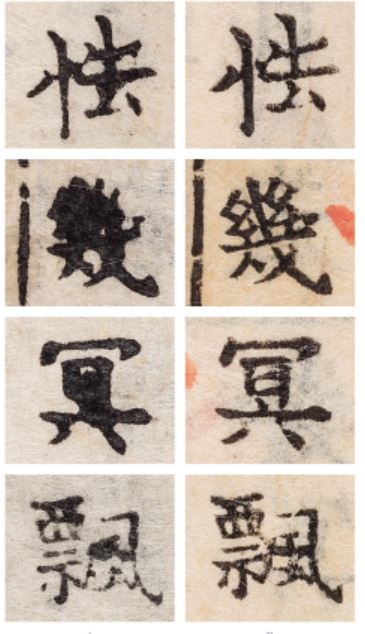 怯 怯
幾 幾
冥 冥
飄 飄